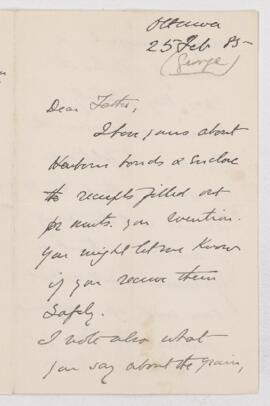 Ottawa
25 Feb 85
(George)
Dear Father,
I have yours about
bonds & enclose
the receipts filled out
for amts. you mention.
You might let me know
if you receive them
safely.
I note also what
you say about the grain,